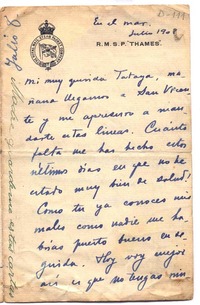 D-111
En el mar,
Julio 190
R.M.S.P. "THAMES".
Mi muy querida Tataya, ma-
ñana llegamos a San Vicen-
te y me apresuro a man-
darte estas líneas. Cuánta
falta me has hecho estos
últimos días en que no he
estado muy bien de salud!
Como tú ya conoces mis
males como nadie me ha-
brías puesto bueno en se-
guida. Hoy voy mejor
así es que no tengas nin
Julio 8